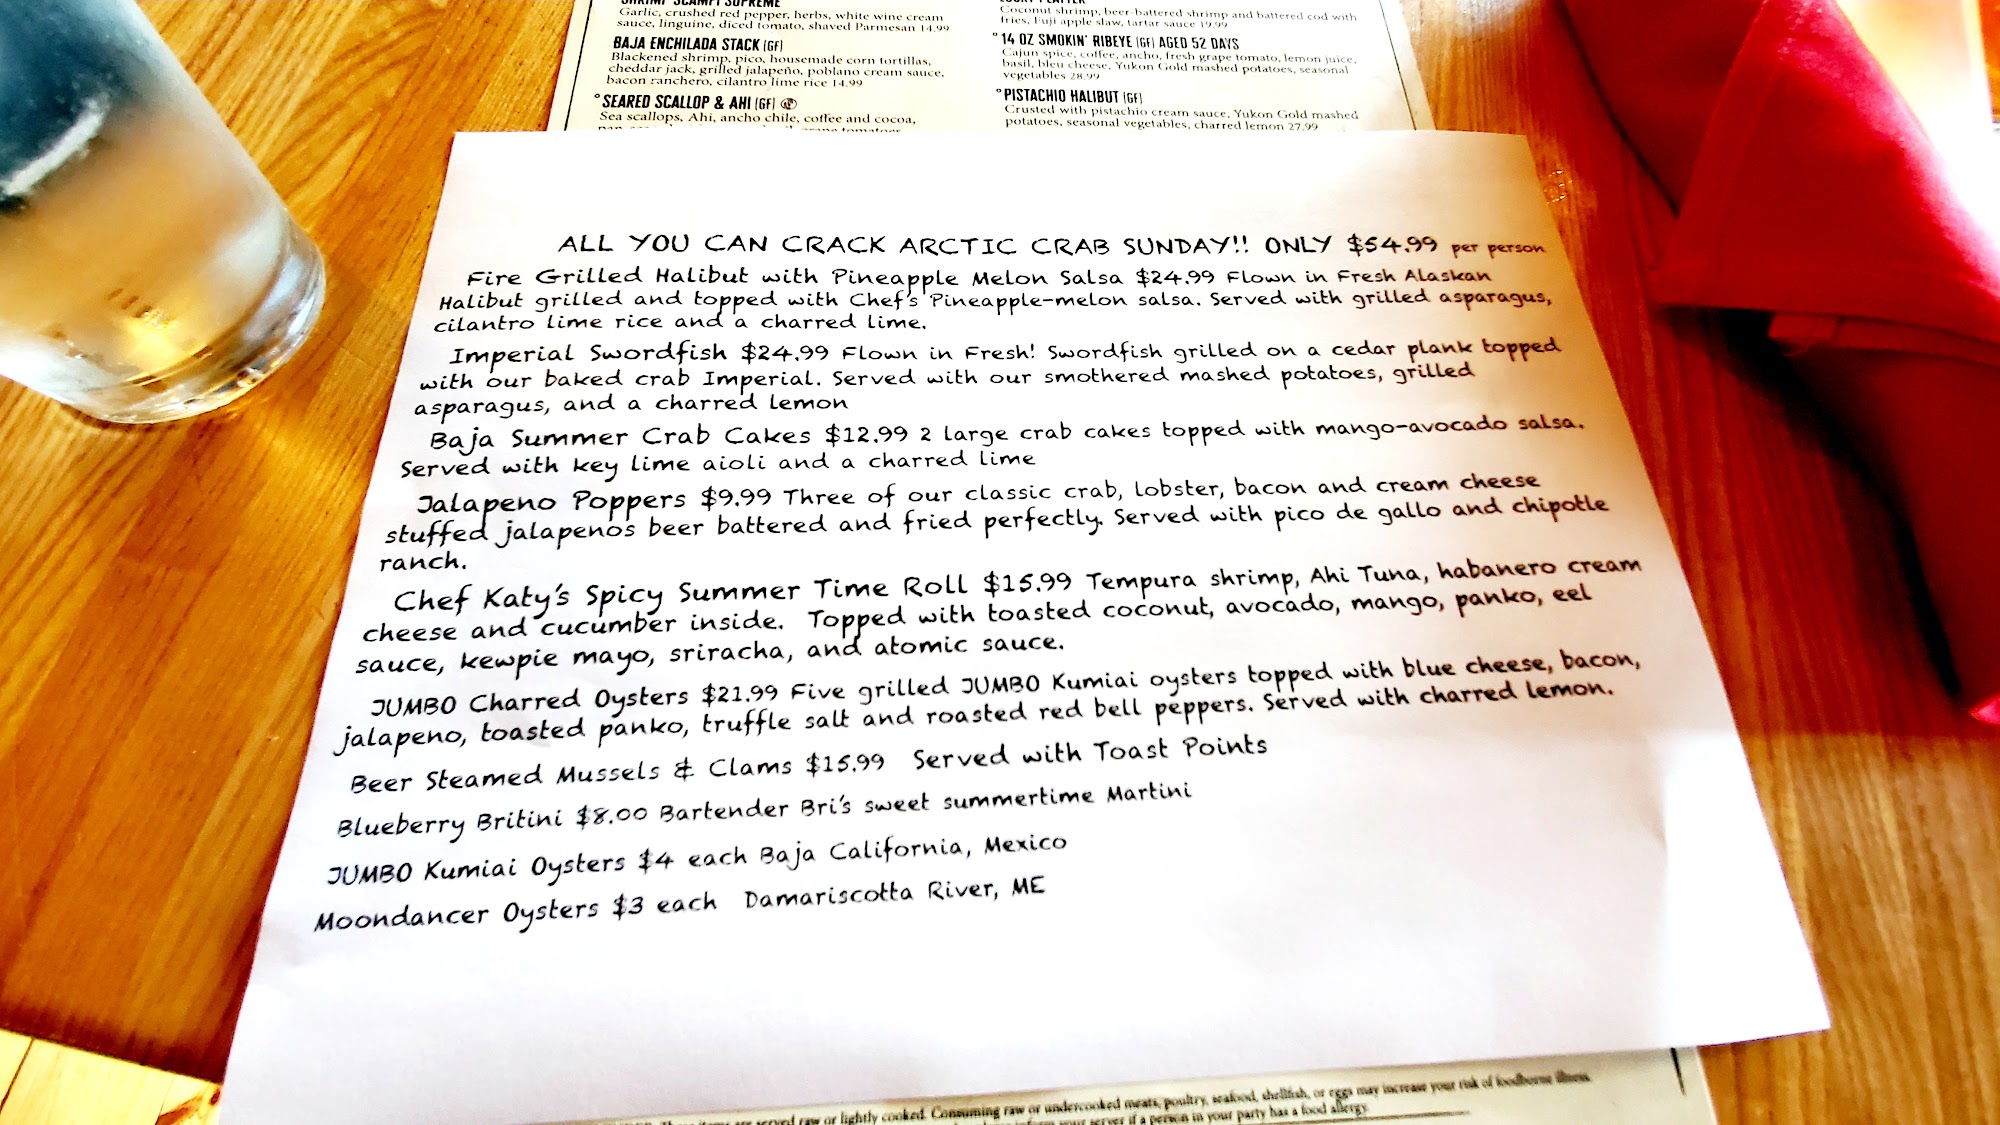 SHRIMP SCAMPI SUPREME
Garlic, crushed red pepper, herbs, white wine cream
sauce, linguine, diced tomato, shaved Parmesan 14.99
BAJA ENCHILADA STACK (GF)
Blackened shrimp, pico, housemade corn tortillas,
cheddar jack, grilled jalapeño, poblano cream sauce,
bacon ranchero, cilantro lime rice 14.99
°SEARED SCALLOP & AHI (GF)
Sea scallops, Ahi, ancho chile, coffee and cocoa,
PLATTER
Coconut shrimp, beer-battered shrimp and battered cod with
fries, Fuji apple slaw, tartar sauce 19.99
°14 OZ SMOKIN' RIBEYE (GF) AGED 52 DAYS
Cajun spice, coffee, ancho, fresh grape tomato, lemon juice,
basil, bleu cheese, Yukon Gold mashed potatoes, seasonal
vegetables 28.99
°PISTACHIO HALIBUT (GF)
Crusted with pistachio cream sauce, Yukon Gold mashed
potatoes, seasonal vegetables, charred lemon 27.99
ALL YOU CAN CRACK ARCTIC CRAB SUNDAY!! ONLY $54.99 per person
Fire Grilled Halibut with Pineapple Melon Salsa $24.99 Flown in Fresh Alaskan
Halibut grilled and topped with Chef's Pineapple-melon salsa. Served with grilled asparagus,
cilantro lime rice and a charred lime.
Imperial Swordfish $24.99 Flown in Fresh! Swordfish grilled on a cedar plank topped
with our baked crab Imperial. Served with our smothered mashed potatoes, grilled
asparagus, and a charred lemon
Baja Summer Crab Cakes $12.99 2 large crab cakes topped with mango-avocado salsa.
Served with key lime aioli and a charred lime
Jalapeno Poppers $9.99 Three of our classic crab, lobster, bacon and cream cheese
stuffed jalapenos beer battered and fried perfectly. Served with pico de gallo and chipotle
ranch.
Chef Katy's Spicy Summer Time Roll $15.99 Tempura shrimp, Ahi Tuna, habanero cream
cheese and cucumber inside. Topped with toasted coconut, avocado, mango, panko, eel
sauce, kewpie mayo, sriracha, and atomic sauce.
JUMBO Charred Oysters $21.99 Five grilled JUMBO Kumiai oysters topped with blue cheese, bacon,
jalapeno, toasted panko, truffle salt and roasted red bell peppers. Served with charred lemon.
Beer Steamed Mussels & Clams $15.99 Served with Toast Points
Blueberry Britini $8.00 Bartender Bri's sweet summertime Martini
JUMBO Kumiai Oysters $4 each Baja California, Mexico
Moondancer Oysters $3 each Damariscotta River, ME
items are served raw or lightly cooked. Consuming raw or undercooked meats, poultry, seafood, shellfish, or eggs may increase your risk of foodborne illness.
inform your server if a person in your party has a food allergy.